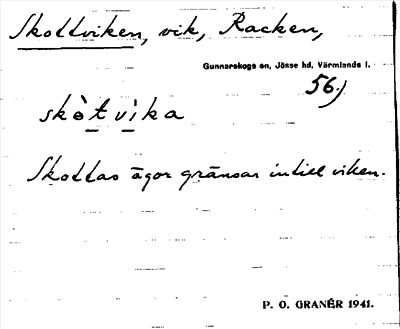 Skottviken, vik, Racken,
Gunnarskogs sn, Jösse hd, Värmlands l.
56.)
skòt vìka
Skottas ägor gränsar intill viken.
P. O. GRANÉR 1941.